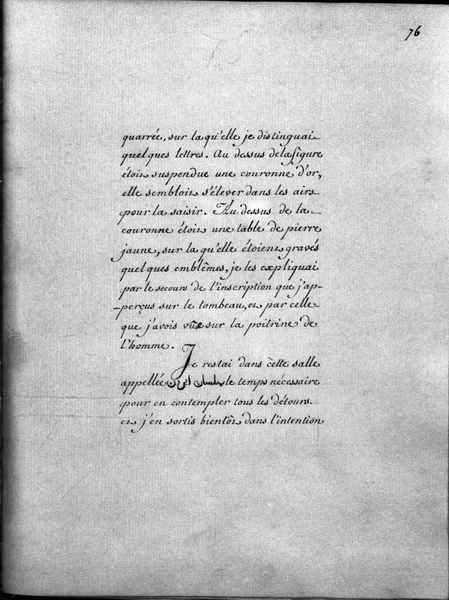 76
quarrée, sur la qu'elle je distinguai
quelques lettres. Au dessus de la figure
étoit suspendue une couronne d'or,
elle sembloit s'élever dans les airs
pour la saisir. Au dessus de la
couronne étoit une table de pierre
jaune, sur la qu'elle étoient gravés
quelques emblêmes, je les expliquai
par le secours de l'inscription que j'ap-
-perçus sur le tombeau, et par celle
que j'avois vüe sur la poitrine de
l'homme.
Je restai dans cette salle
appellée le temps nécessaire
pour en contempler tous les détours
et j'en sortis bientôt dans l'intention